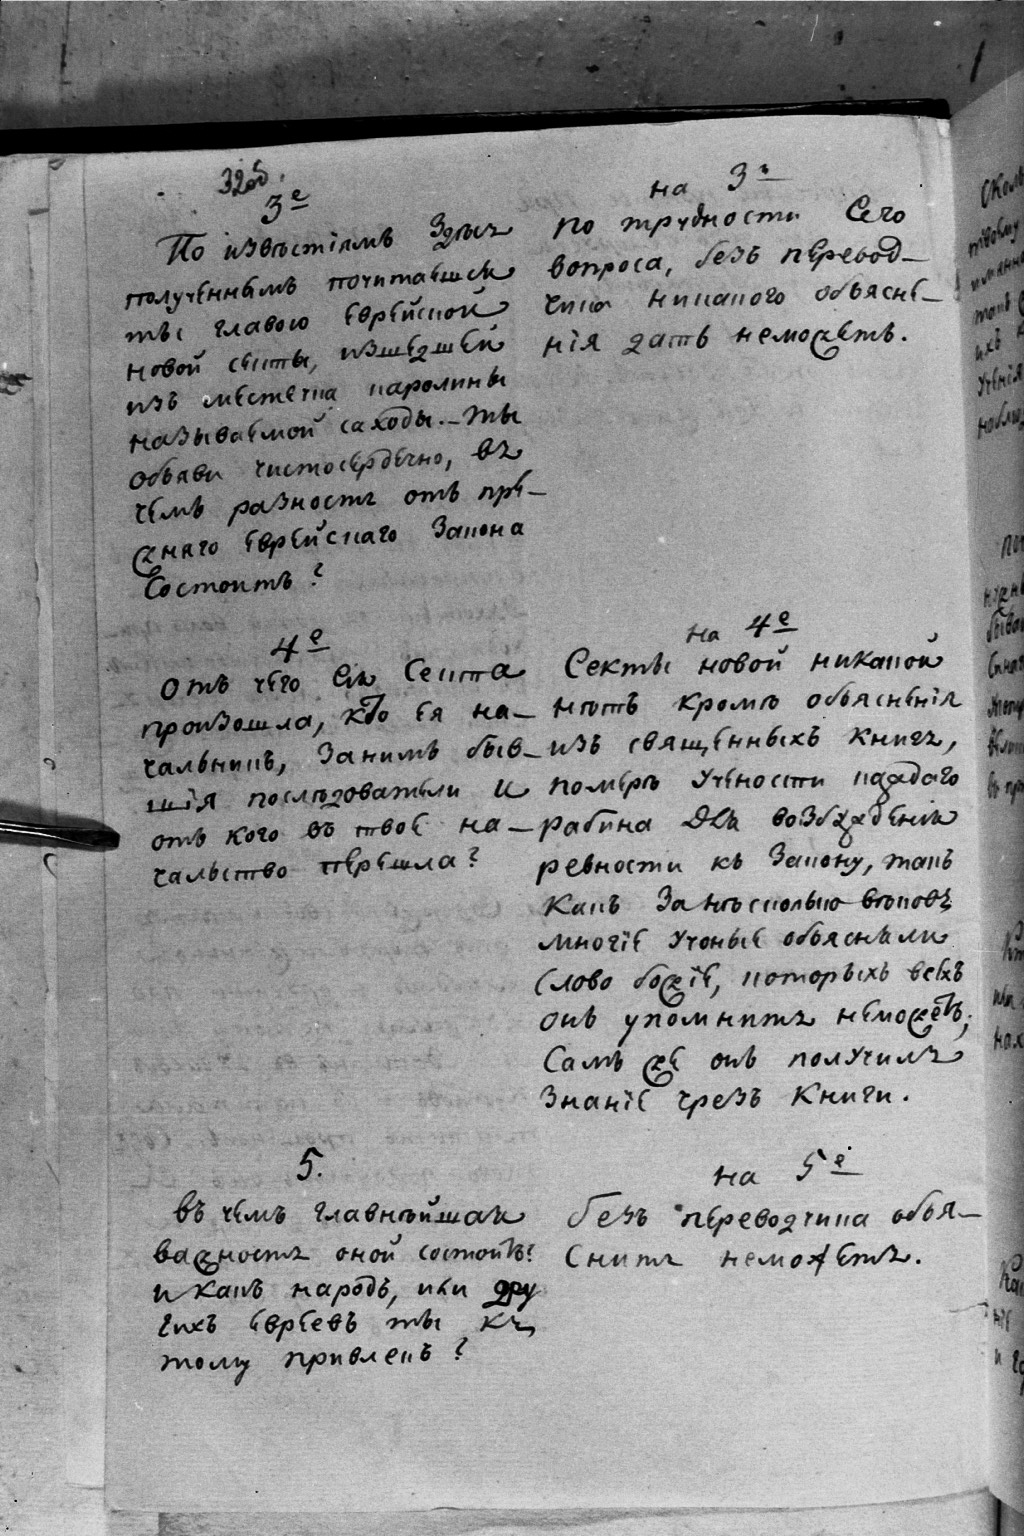 32 об.
3е
По извѣстіямъ Здѣсь
полученнымъ почитаешся
ты главою Еврейской
новой секты, изшедшей
изъ местечка каролины
называемой саходы. - ты
объяви чистосердечно, въ
чемъ разность отъ пре-
жняго еврейскаго Закона
Состоитъ?
на 3й
по трудности Сего
вопроса, безъ перевод-
чика никакого объясне-
нія дать неможетъ.
4е
отъ чего Сія Секта
произошла, кто ея на-
чальникъ, Занимъ быв-
шія послѣдователи и
отъ кого въ твое на-
чальство перешла?
на 4е
Секты новой никакой
нѣтъ кромѣ объясненія
изъ священныхъ книгъ,
помѣрѣ Учености каждаго
рабина для возбужденія
ревности къ Закону, такъ
какъ Занѣсколько вѣковъ
многіе Ученые объясняли
Слово божіе, которыхъ всехъ
онъ упомнить неможетъ;
Самъ же онъ получилъ
Знаніе чрезъ Книги.
5.
въ чемъ главнѣйшая
важность оной состоитъ?
и какъ народъ, или дру
гихъ евреевъ ты къ
тому привлекъ?
на 5е
безъ переводчика объя-
снить неможетъ.